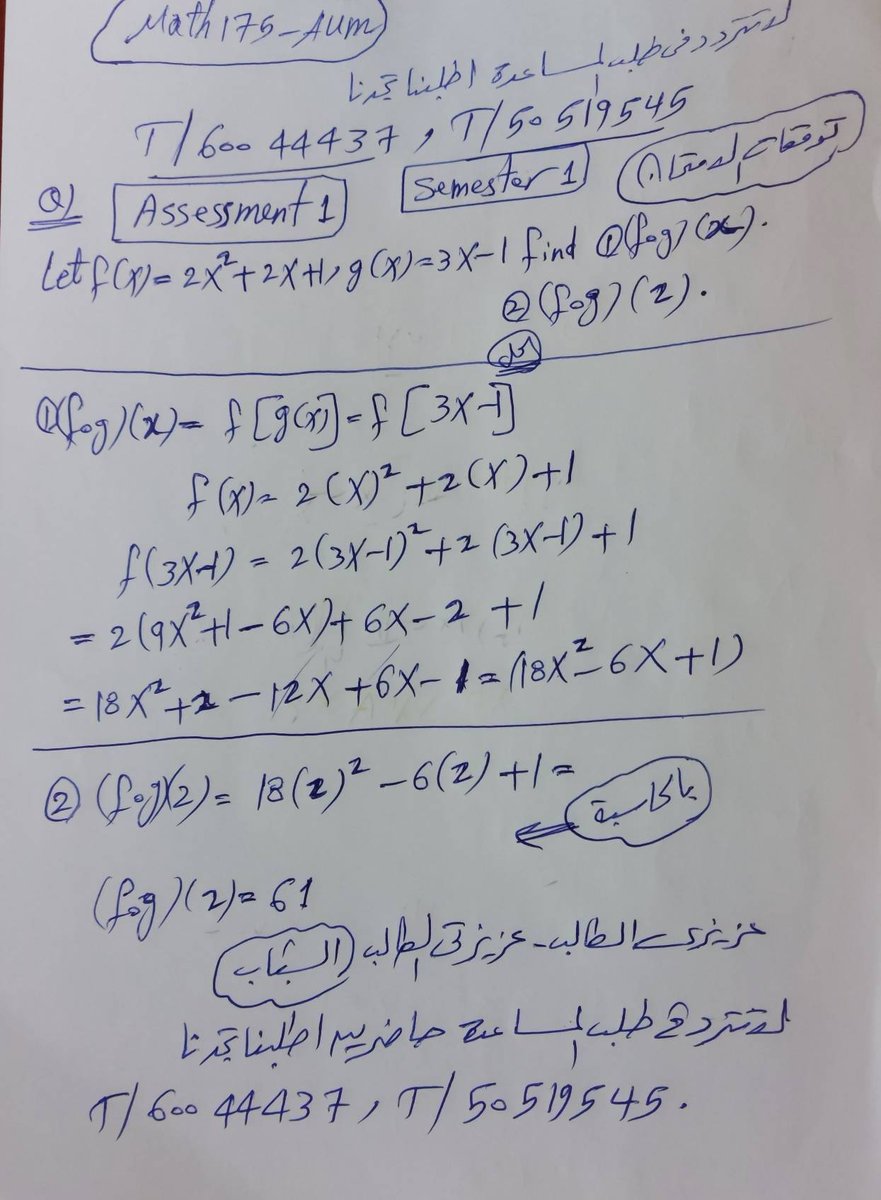 Math 175-Aum
لا تتردد في طلب المساعدة اطلبنا تجدنا
T/600 44437, T/50 519545
Q) Assessment 1 Semester 1 توقعات الامتحان
Let f(x)=2x²+2x+1, g(x)=3x-1 find ①(fog)(x).
②(fog)(2).
الحل
①(fog)(x)= f[g(x)]=f[3x-1]
f(x)= 2(x)²+2(x)+1
f(3x-1) = 2(3x-1)²+2(3x-1)+1
= 2(9x²+1-6x)+6x-2+1
= 18x²+2-12x+6x-1=(18x²-6x+1)
② (fog)(2)= 18(2)²-6(2)+1=
بالحاسبة
(fog)(2)=61
عزيزي الطالب - عزيزتي الطالب الشباب
لا تتردد في طلب المساعدة حاضرين اطلبنا تجدنا
T/600 44437, T/50519545.